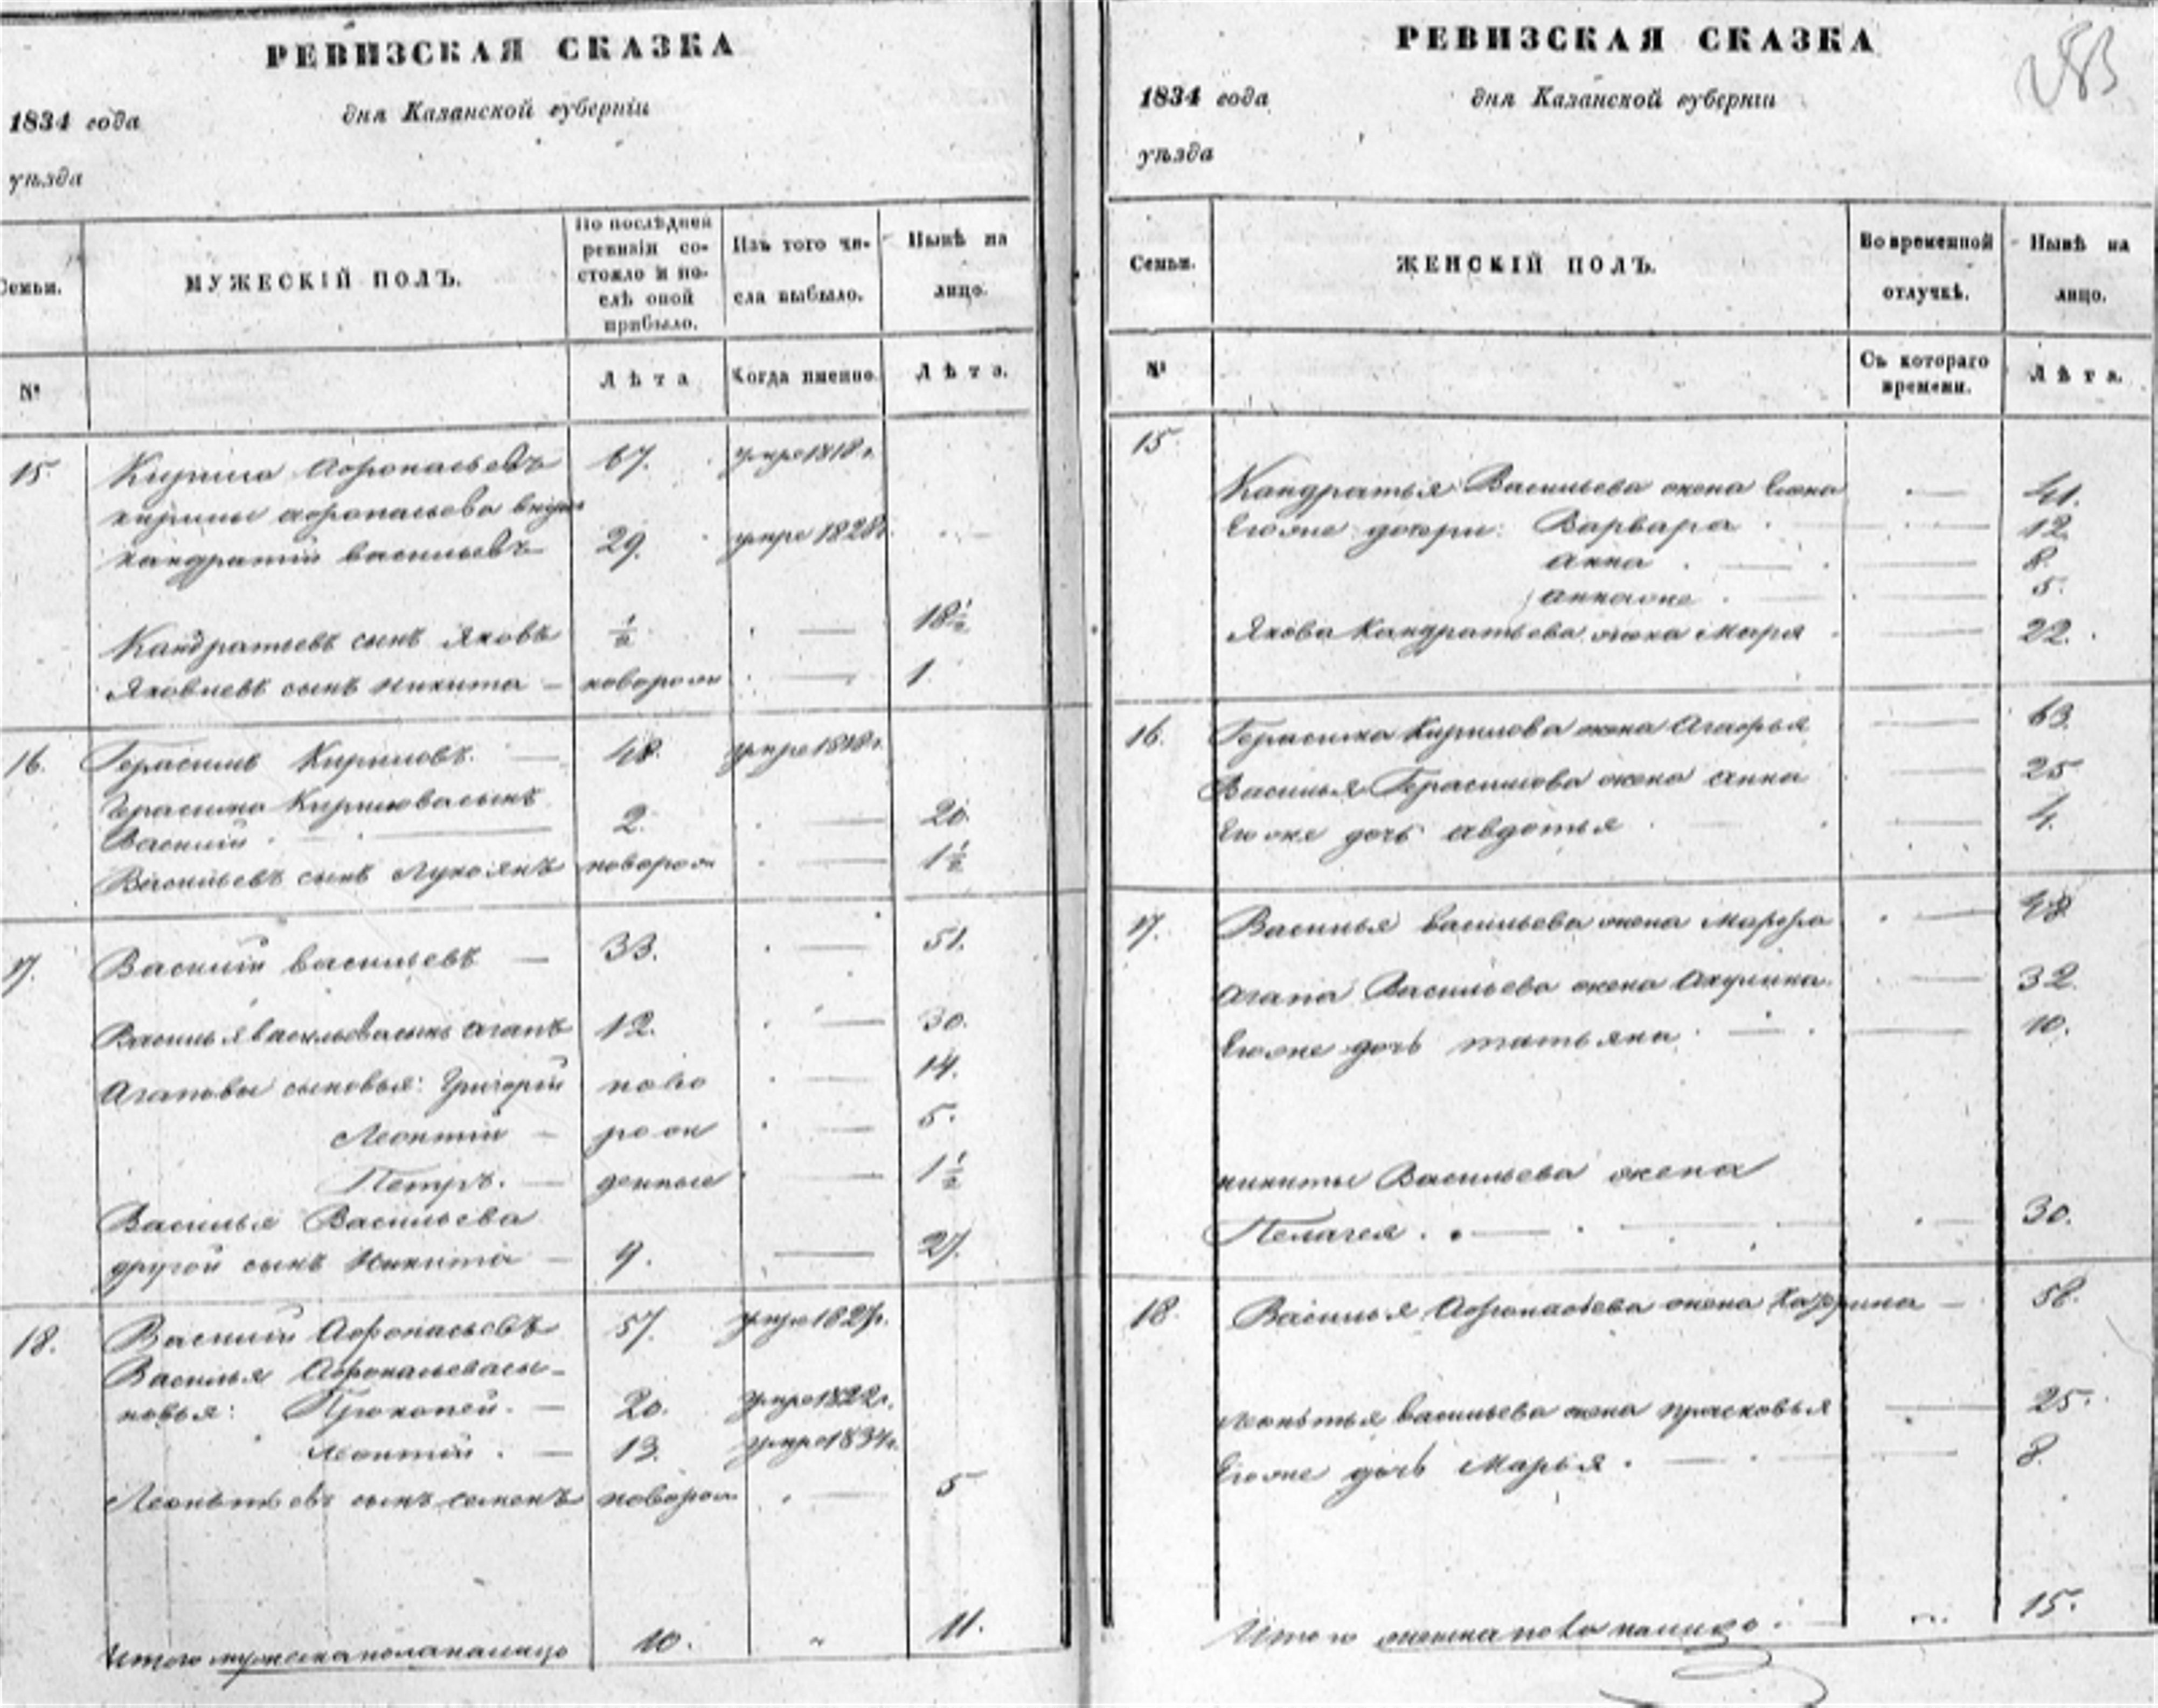 РЕВИЗСКАЯ СКАЗКА
1834 года
дня Казанской губернии
уѣзда
Семьи.
МУЖЕСКІЙ ПОЛЪ.
По послѣдней ревизіи состояло и послѣ оной прибыло.
Изъ того числа выбыло.
Нынѣ на лицо.
№
Лѣта
Когда именно.
Лѣта.
15. Кирила Афонасьевъ 67. умре 1818 г.
кирилы афонасьева внукъ
кандратій васильевъ 29. умре 1828 г.
Кандратьевъ сынъ Яковъ ½ 18½
Яковлевъ сынъ никита — новорож 1.
16. Герасимъ Кириловъ. 48. умре 1818 г.
Герасима Кирилова сынъ
Василий 2. 20.
Васильевъ сынъ Лукоянъ новорож 1½
17. Василий васильевъ — 33. 51.
Василья васильева сынъ агапъ 12. 30.
Агаповы сыновья: Григорій ново 14.
Леонтій — рож 5.
Петръ. — денные 1½
Василья Васильева
другой сынъ Никита — 9. 27.
18. Василий Афонасьевъ 57. умре 1827 г.
Василья Афонасьева сы-
новья: Прокопей. — 20. умре 1822 г.
Леонтій. — 13. умре 1834 г.
Леонтьевъ сынъ семенъ новорож 5
Итого мужеска пола налицо 10. 11.
РЕВИЗСКАЯ СКАЗКА
1834 года
дня Казанской губернии
уѣзда
Семьи.
ЖЕНСКІЙ ПОЛЪ.
Во временной отлучкѣ.
Нынѣ на лицо.
№
Съ котораго времени.
Лѣта.
15.
Кандратья Васильева жена 41.
Егоже дочери: Варвара 12.
анна 8.
анна же 5.
Якова Кандратьева жена Марья 22.
16. Герасима Кирилова жена Агафья 63.
Василья Герасимова жена анна 25
Егоже дочь авдотья 4.
17. Василья васильева жена Марфа 48
агапа Васильева жена Акулина 32.
Егоже дочь татьяна 10.
никиты Васильева жена
Пелагея. 30.
18. Василья Афонасьева жена 58.
леонтья васильева жена прасковья 25.
Егоже дочь Марья. 8.
Итого женска пола налицо. 15.